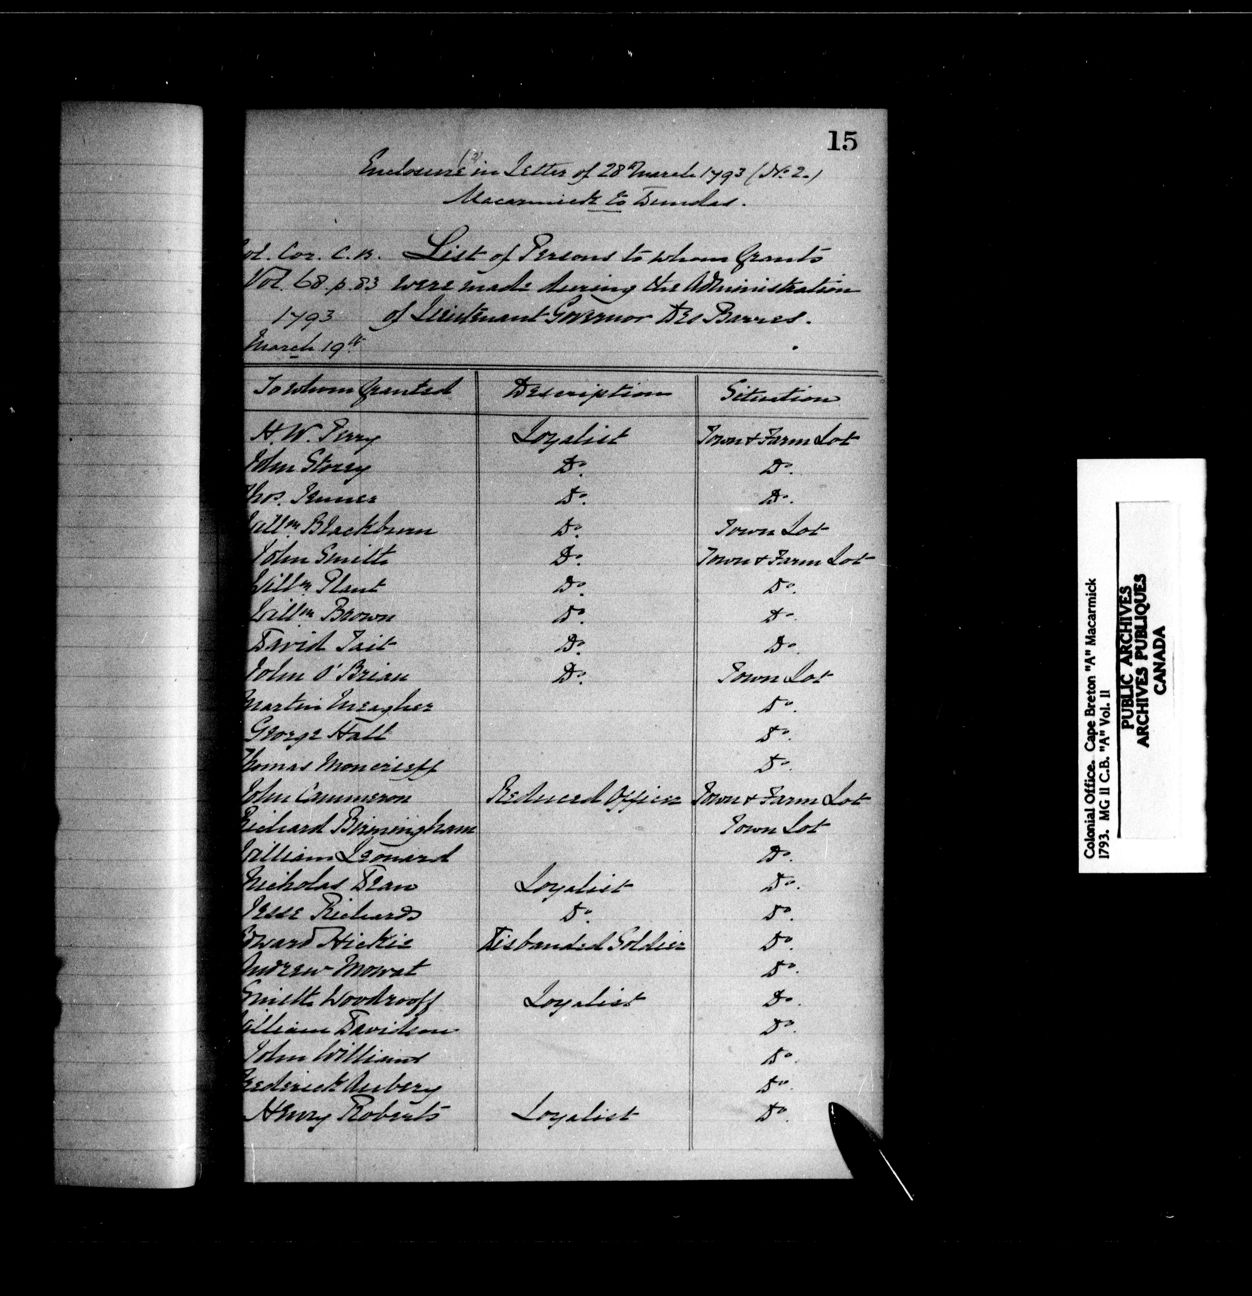 15
Enclosure (3) in Letter of 28th March 1793 (No. 2.)
Macarmick to Dundas.
Col. Cor. C.B. List of Persons to whom Grants
Vol 68. p. 83 were made during the Administration
1793 of Lieutenant Governor Des Barres.
March 19th
To whom Granted Description Situation
H. W. Perry Loyalist Town & Farm Lot
John Storey Do. Do.
Thos. Do. Do.
Willm. Blackburn Do. Town Lot
John Smith Do. Town & Farm Lot
Willm. Plant Do. Do.
Willm. Brown Do. Do.
David Tait Do. Do.
John O'Brian Do. Town Lot
Martin Meagher Do.
George Hall Do.
Thomas Moncrieff Do.
John Cammeron Reduced Officer Town & Farm Lot
Richard Birmingham Town Lot
William Leonard Do.
Nicholas Dean Loyalist Do.
Jesse Richards Do. Do.
Edward Hickie Disbanded Soldier Do.
Andrew Mowat Do.
Smith Woodrooff Loyalist Do.
William Davidson Do.
John Williams Do.
Frederick Aubery Do.
Henry Roberts Loyalist Do.
Colonial Office. Cape Breton "A" Macarmick
1793. MG 11 C.B. "A" Vol. 11
PUBLIC ARCHIVES
ARCHIVES PUBLIQUES
CANADA